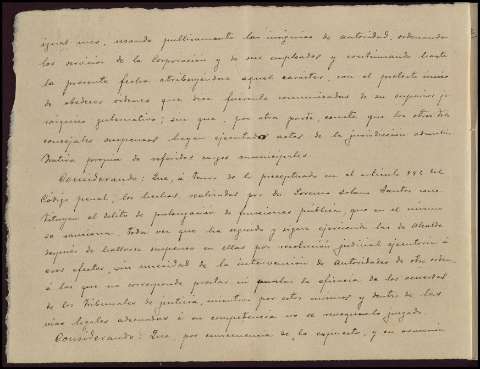 igual mes, usando publicamente las insignias de autoridad, ordenando
los servicios de la Corporacion y de sus empleados y continuando hasta
la presente fecha atribuyendose aquel carácter, con el pretexto
de obedecer ordenes que dice fueronle comunicadas de su superior je-
rarquico gubernativo; sin que, por otra parte, conste que los otros dos
concejales suspensos hayan ejecutado actos de la jurisdiccion adminis-
trativa propia de referidos cargos municipales.
Considerando: Que, á tenor de lo preceptuado en el artículo del
Código penal, los hechos realizados por dn Lorenzo Solano Santos cons-
tituyen el delito de prolongacion de funciones públicas, que en el mismo
se sanciona, toda vez que ha seguido y sigue ejerciendo las de Alcalde
después de hallarse suspenso en ellas por resolución judicial ejecutoria á
esos efectos, sin necesidad de la intervención de Autoridades de otro orden,
á las que no corresponde prestar su de eficacia de los acuerdos
de los Tribunales de justicia, mientras por estos mismos y dentro de las
vias legales adecuadas á su competencia no se revoque lo juzgado.
Considerando: Que, por consecuencia de lo expuesto, y en armonía